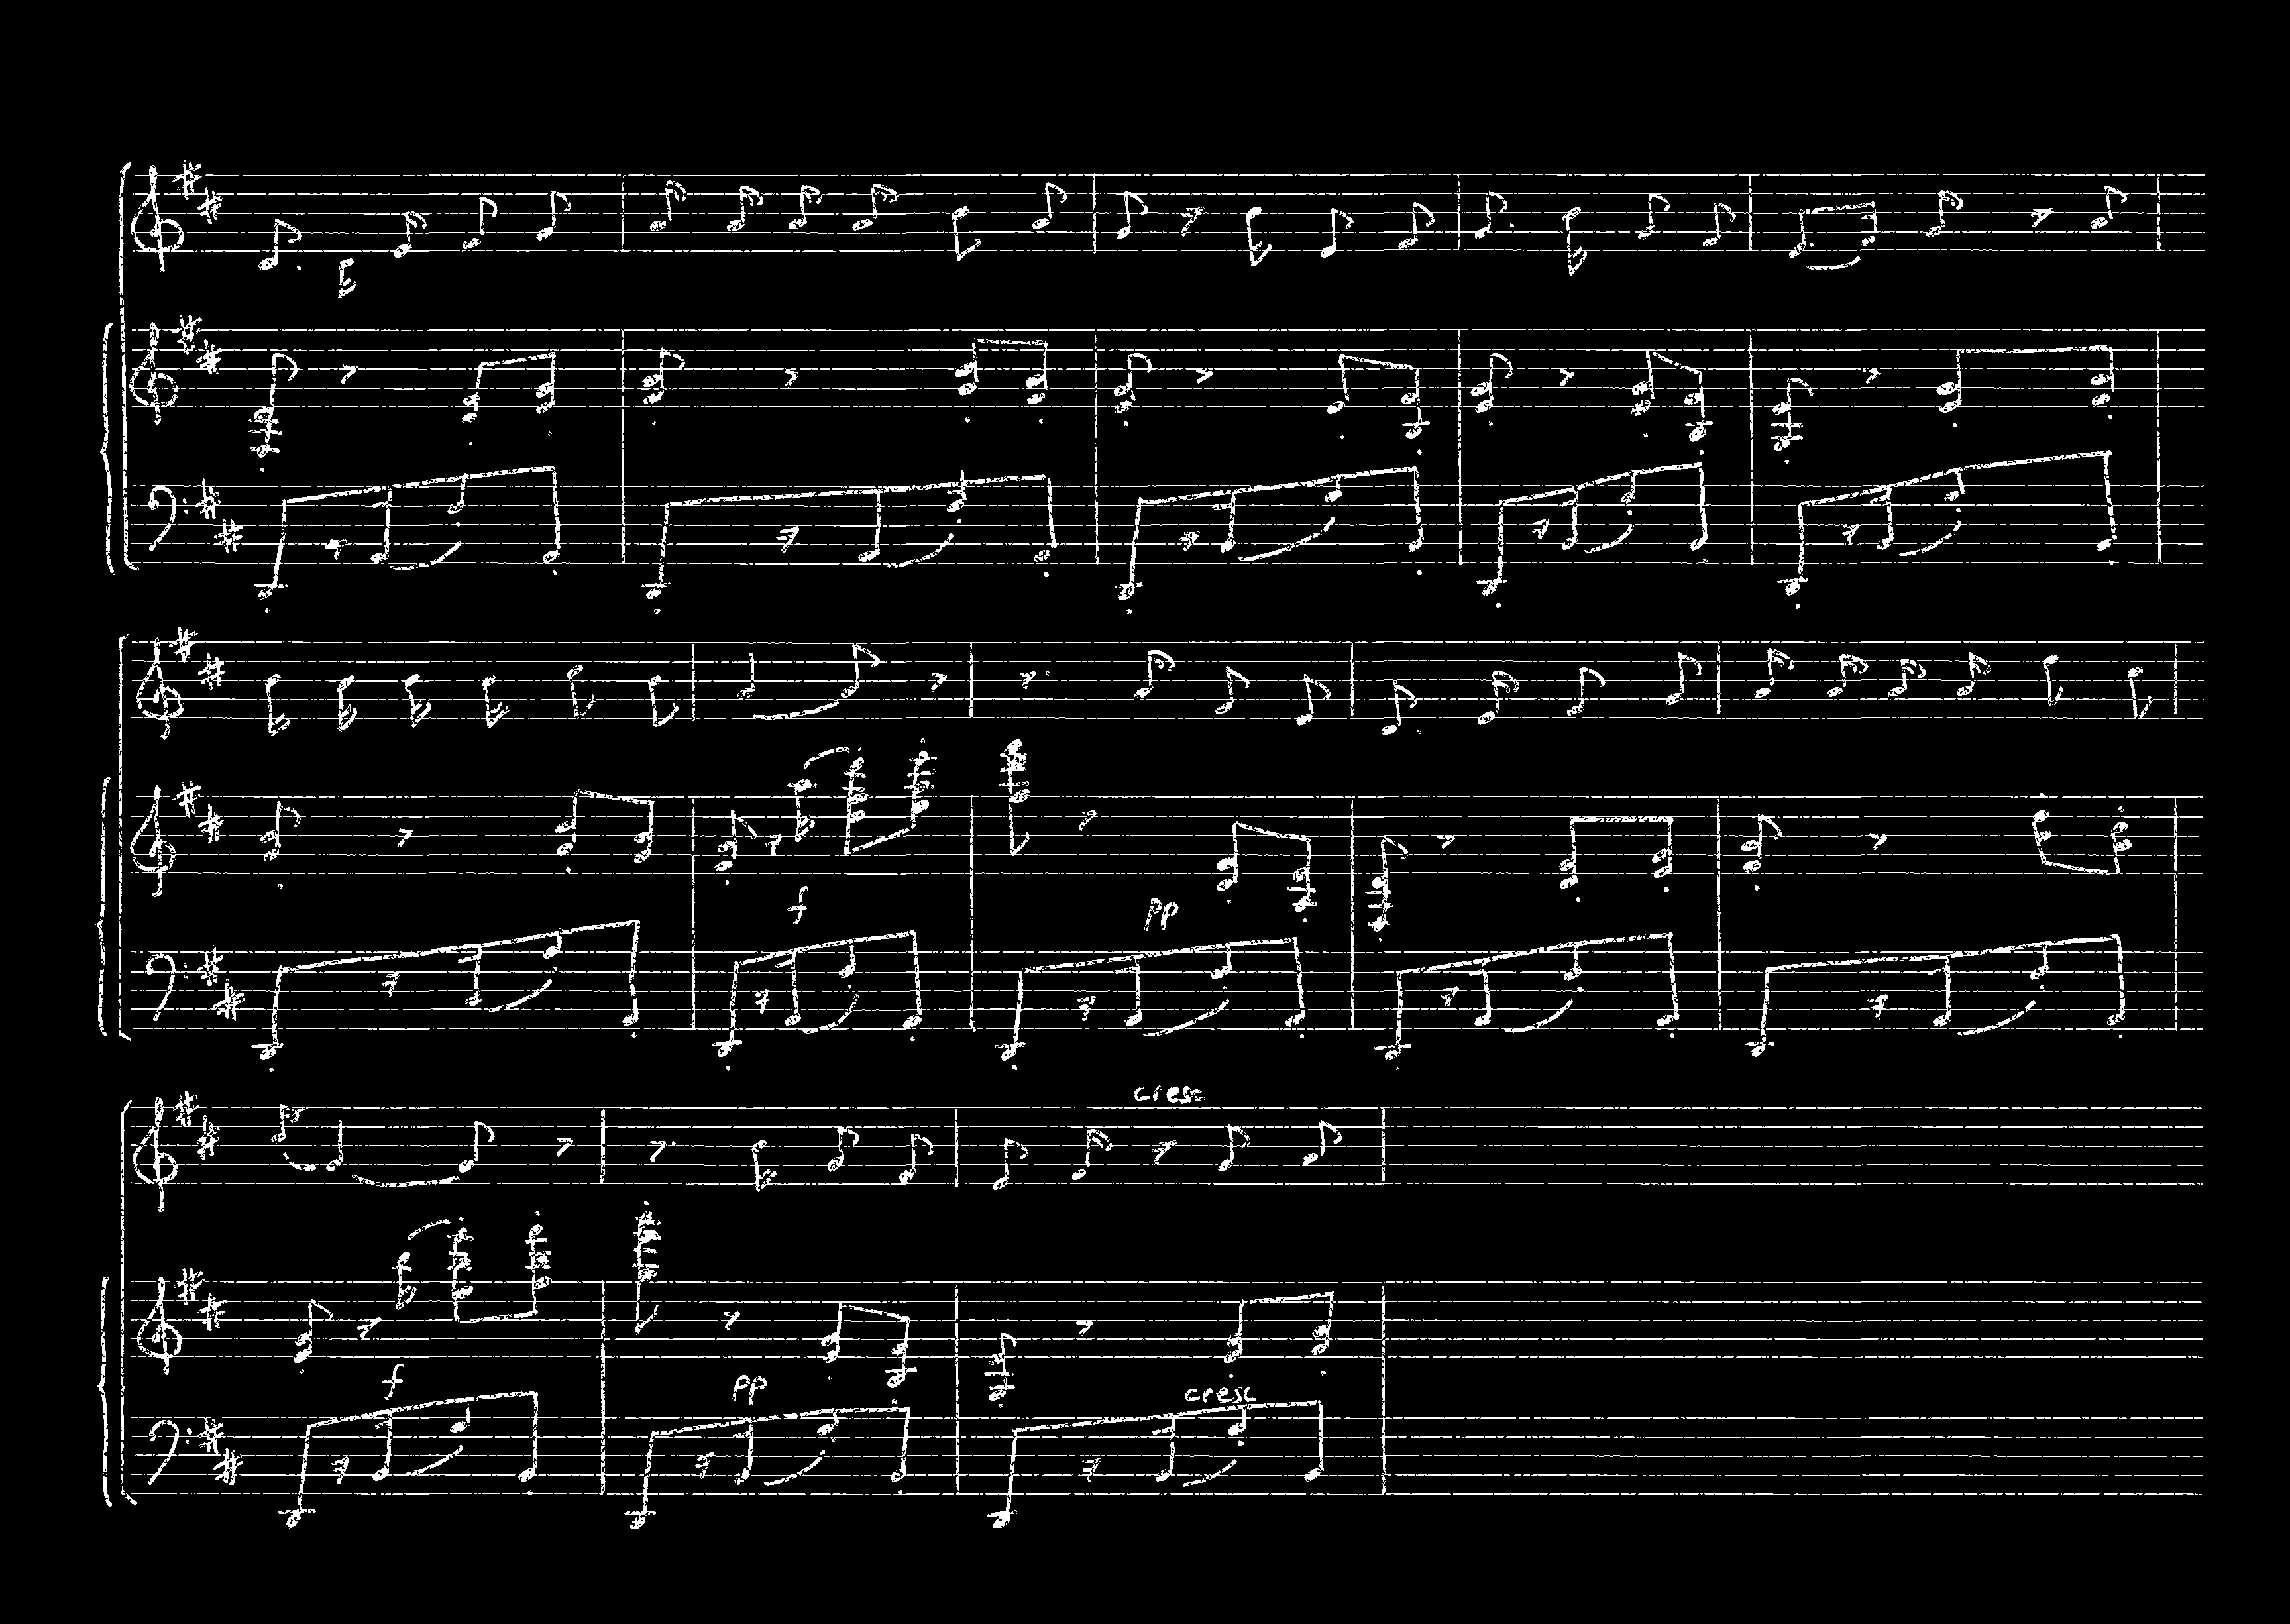 f
pp
cresc
f
pp
cresc